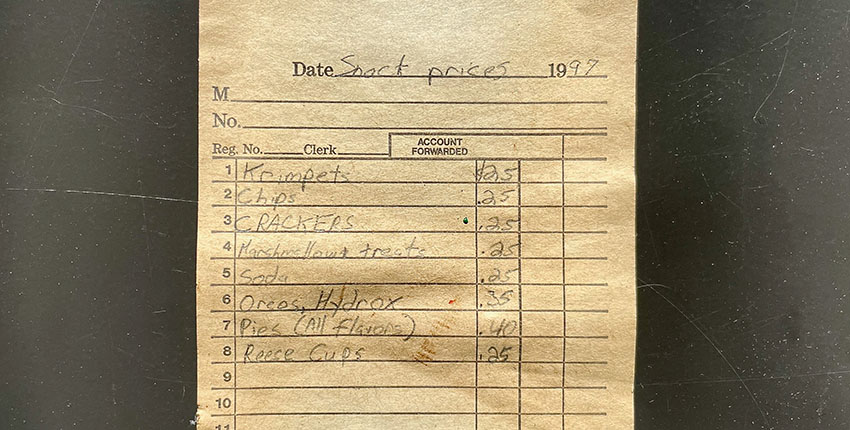 Date Snack prices 1997
M
No.
Reg. No. Clerk ACCOUNT FORWARDED
1 Krimpets $.25
2 Chips .25
3 CRACKERS .25
4 Marshmellow treats .25
5 Soda .25
6 Oreos, Hydrox .35
7 Pies (All flavors) .40
8 Reese Cups .25
9
10
11